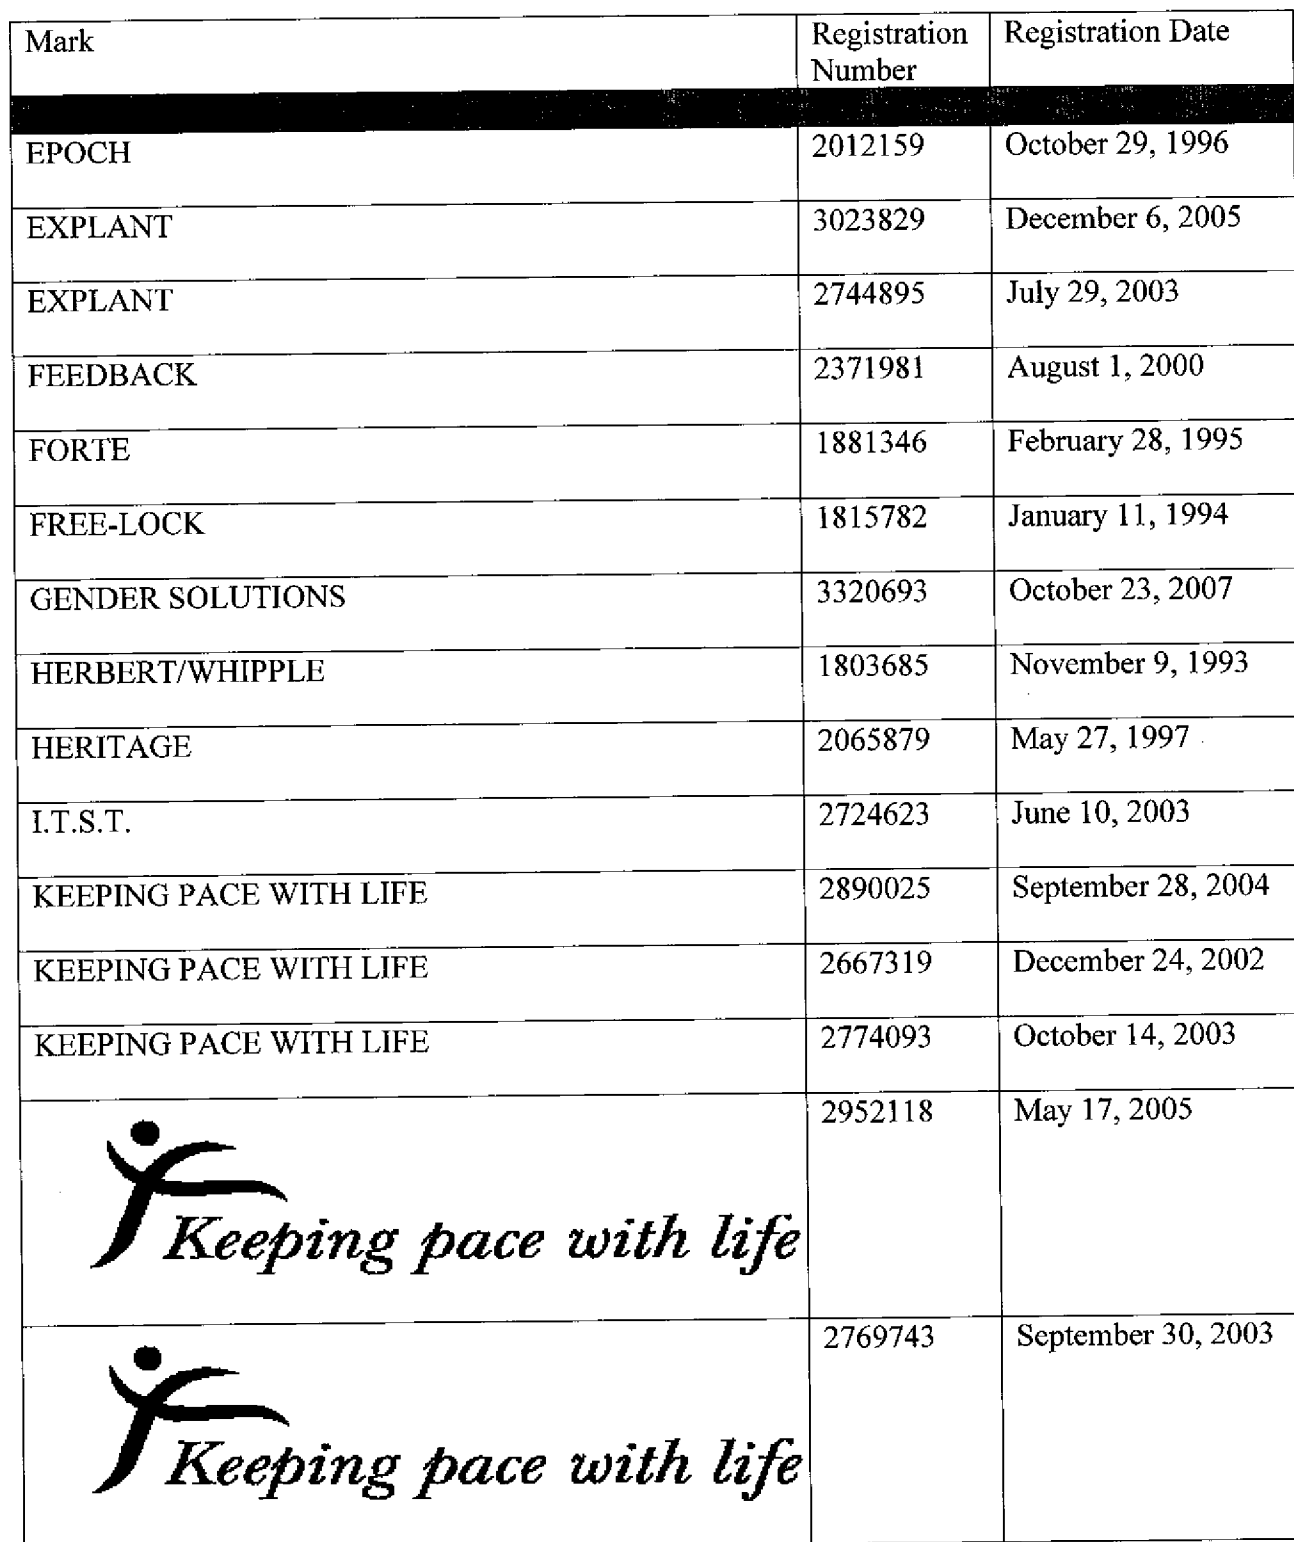 Mark Registration Number Registration Date
EPOCH 2012159 October 29, 1996
EXPLANT 3023829 December 6, 2005
EXPLANT 2744895 July 29, 2003
FEEDBACK 2371981 August 1, 2000
FORTE 1881346 February 28, 1995
FREE-LOCK 1815782 January 11, 1994
GENDER SOLUTIONS 3320693 October 23, 2007
HERBERT/WHIPPLE 1803685 November 9, 1993
HERITAGE 2065879 May 27, 1997
I.T.S.T. 2724623 June 10, 2003
KEEPING PACE WITH LIFE 2890025 September 28, 2004
KEEPING PACE WITH LIFE 2667319 December 24, 2002
KEEPING PACE WITH LIFE 2774093 October 14, 2003
2952118 May 17, 2005
Keeping pace with life
2769743 September 30, 2003
Keeping pace with life